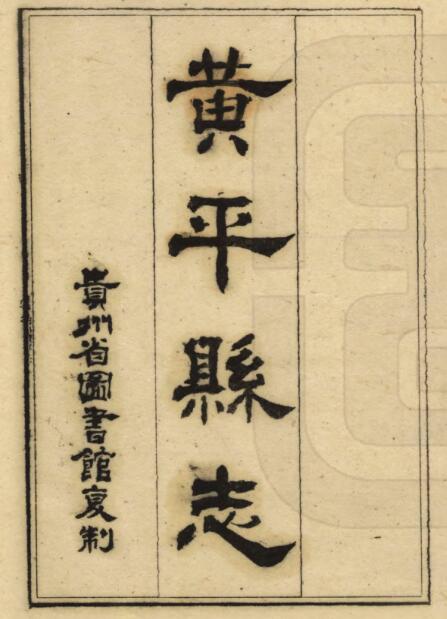 黄平縣志
貴州省圖書館复制